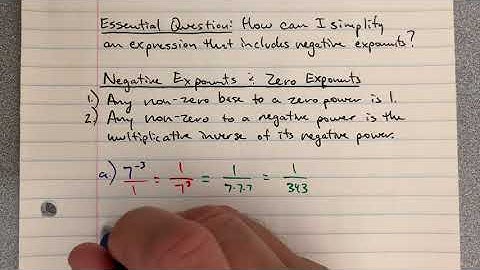 Essential Question: How can I simplify
an expression that includes negative exponents?
Negative Exponents & Zero Exponents
1.) Any non-zero base to a zero power is 1.
2.) Any non-zero to a negative power is the
multiplicative inverse of its negative power.
a.) 7⁻³/1 = 1/7³ = 1/7·7·7 = 1/343